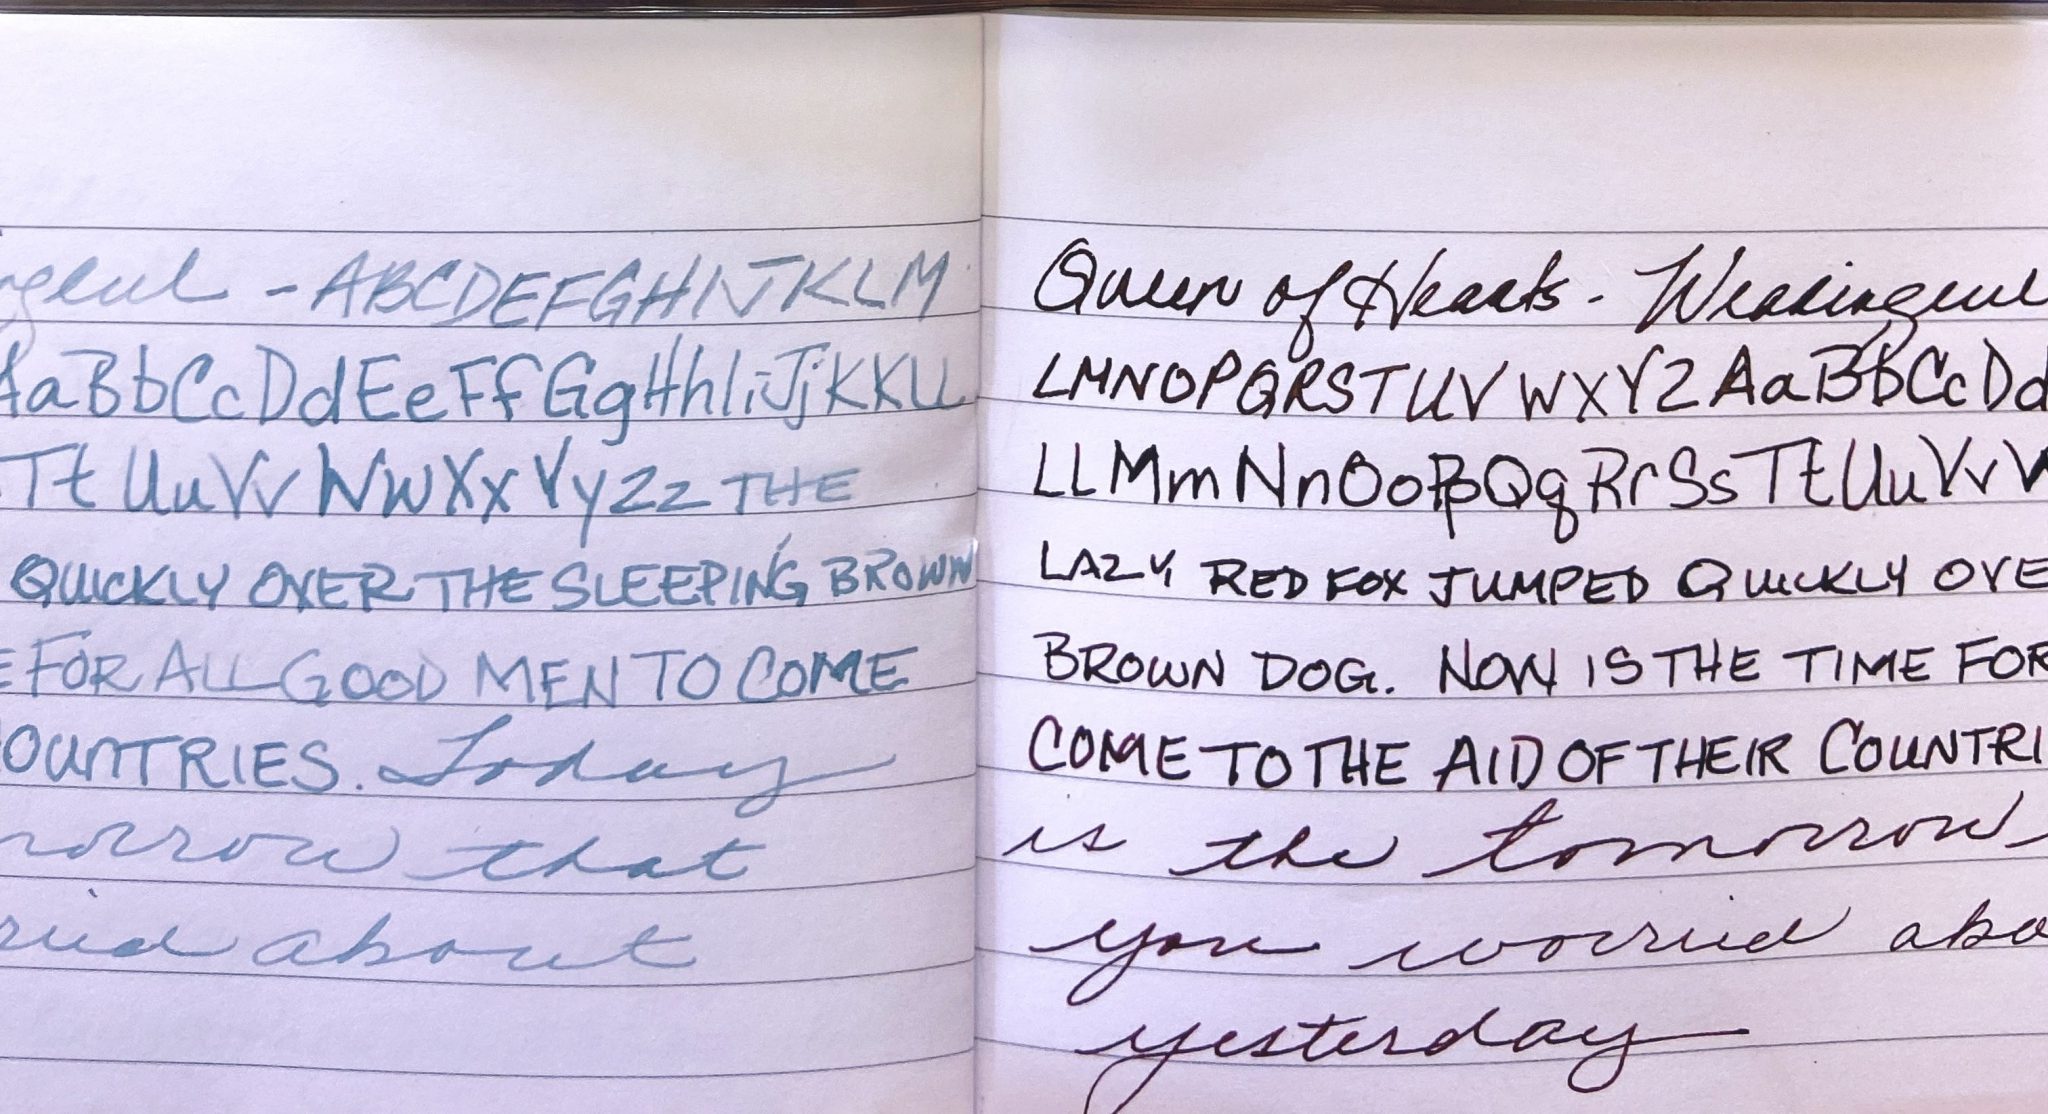 ngeul - ABCDEFGHIJKLM
AaBbCcDdEeFfGgHhIiJjKKLL
TtUuVvWwXxYyZz THE
QUICKLY OVER THE SLEEPING BROWN
E FOR ALL GOOD MEN TO COME
OUNTRIES. Today
morrow that
ried about
Queen of Hearts - Wearingeul
LMNOPQRSTUVWXYZ AaBbCcDd
LLMmNnOoPpQqRrSsTtUuVvW
LAZY, RED FOX JUMPED QUICKLY OVE
BROWN DOG. NOW IS THE TIME FOR
COME TO THE AID OF THEIR COUNTRI
is the tomorrow
you worried abo
yesterday